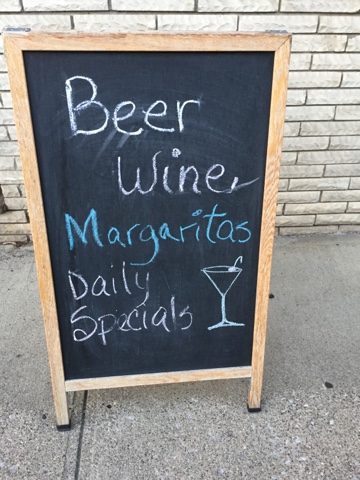 Beer
Wine
Margaritas
Daily
Specials